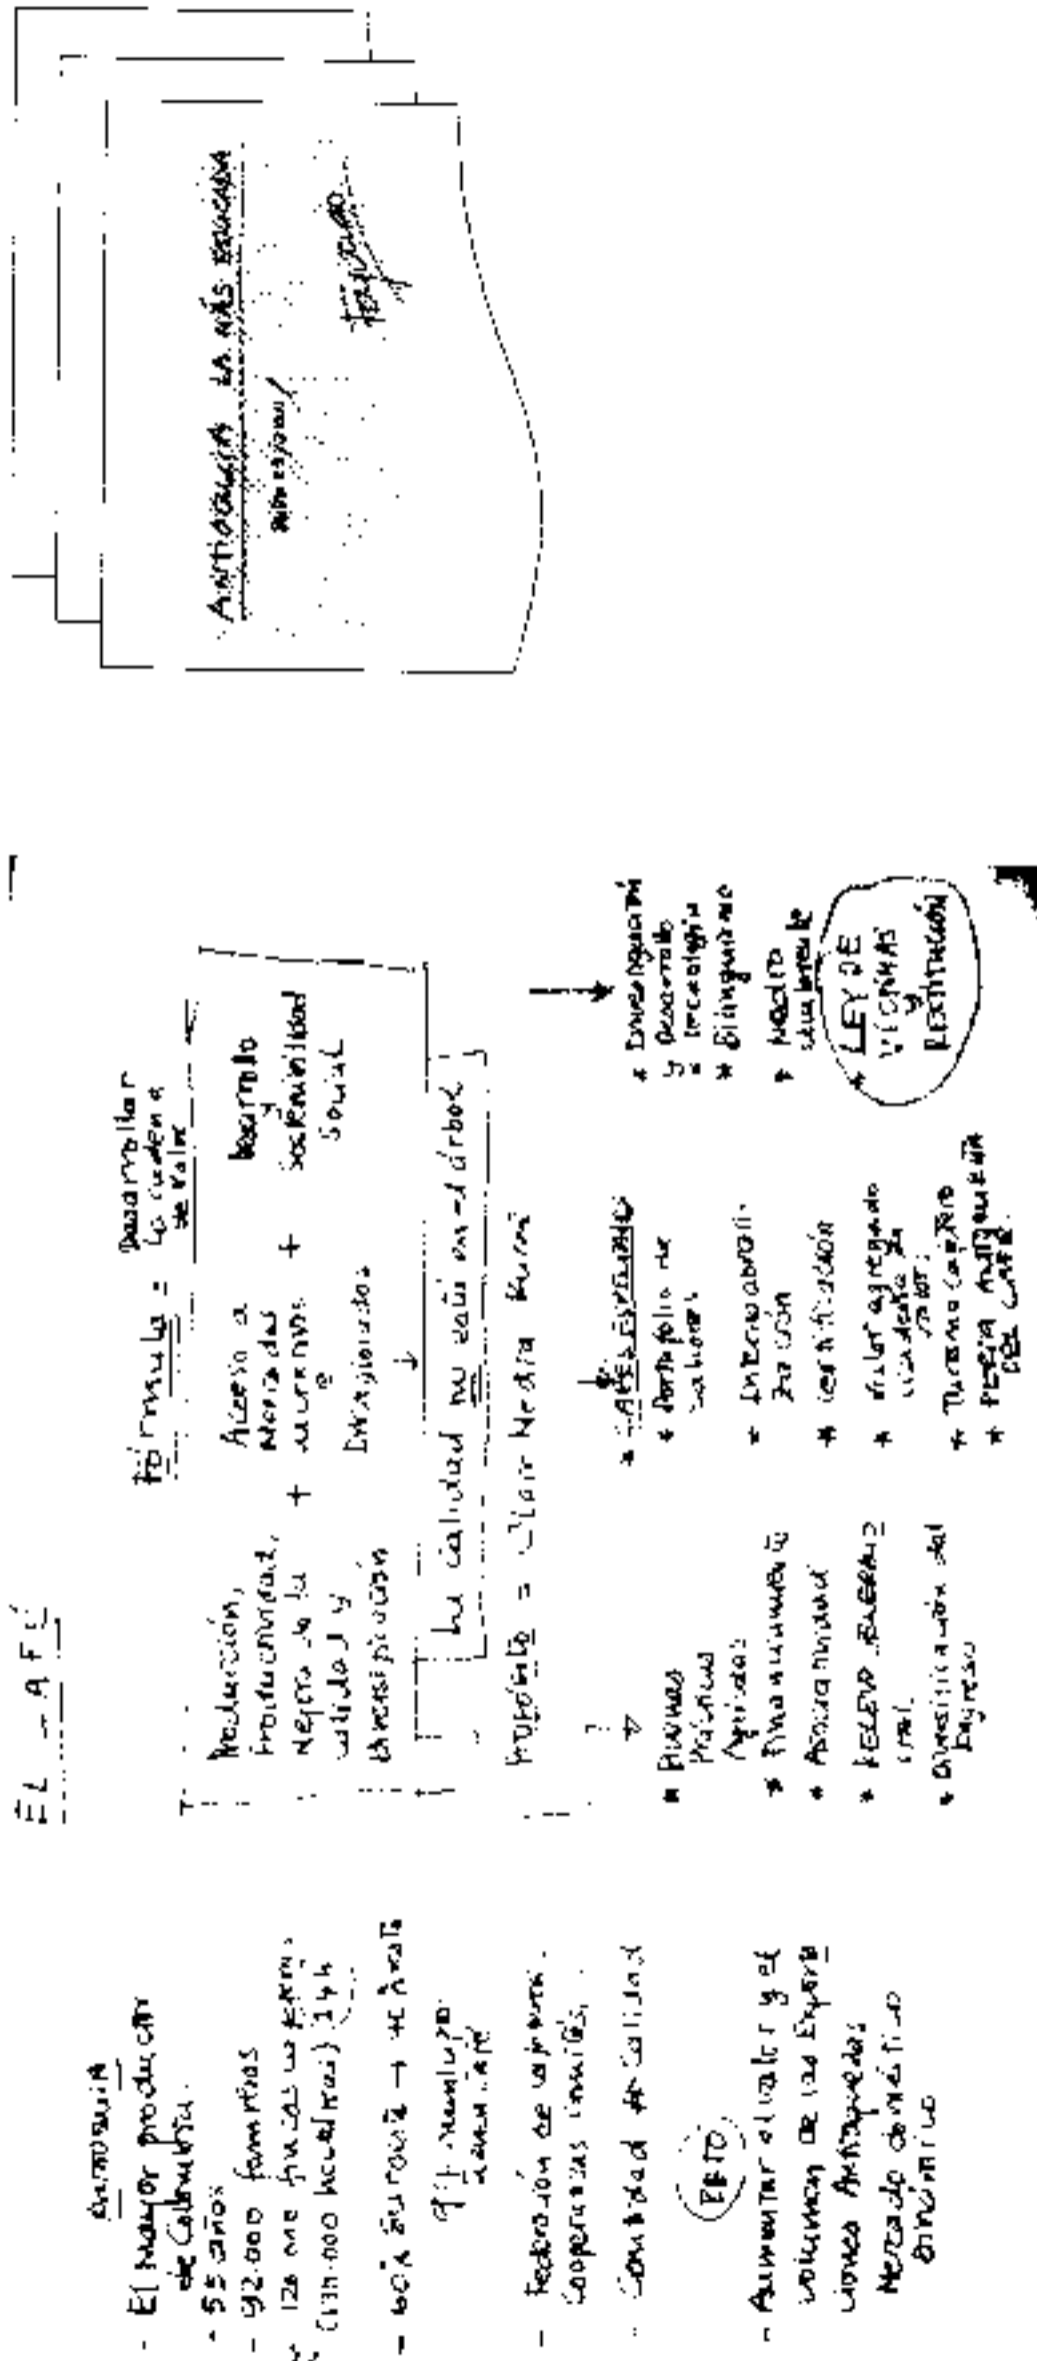 EL CAFÉ
ANTIOQUIA
- El Mayor productor
de Colombia
- 55 años
- 92.000 familias
126 000 fincas
hectáreas) 1.4 h
- 60%
- Federación de
Cooperativas
- Comunidad de Calidad
RETO
- Aumentar el valor y el
volumen de las Exporta
ciones Antioqueñas
Mercado doméstico
dinámico
Fórmula = Desarrollar
la cadena
de Valor
Producción,
Productividad,
Mejora de la
calidad y
+ Acceso a
Mercados
e
Intangibles
+ Desarrollo
y
Sostenibilidad
Social
La calidad no está en el árbol
Propósito = Clase Media Rural
* Buenas
Prácticas
Agrícolas
* Financiamiento
* Asociatividad
* RELEVO GENERACIO
* Diversificación del
Ingreso
* CAFES ESPECIALES
* Portafolio de
* Internacionali-
zación
* Certificación
* Valor agregado
cadena de
valor
* Turismo Cafetero
* FERIA ANTIOQUEÑA
DEL CAFE
* Investigación
y Desarrollo
* Tecnología
* Bilingüismo
* Medio
ambiente
* LEY DE
VÍCTIMAS
y
RESTITUCIÓN
ANTIOQUIA LA MÁS EDUCADA